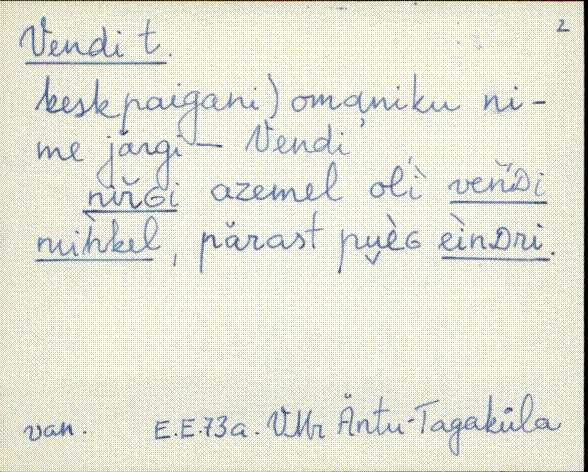 2
Vendi t.
keskpaigani) omaniku ni-
me järgi – Vendi
nirGi azemel olì veńDi
mìhkel, pärast pụèG eìnDri.
van. E.E.73a. VMr Äntu-Tagaküla